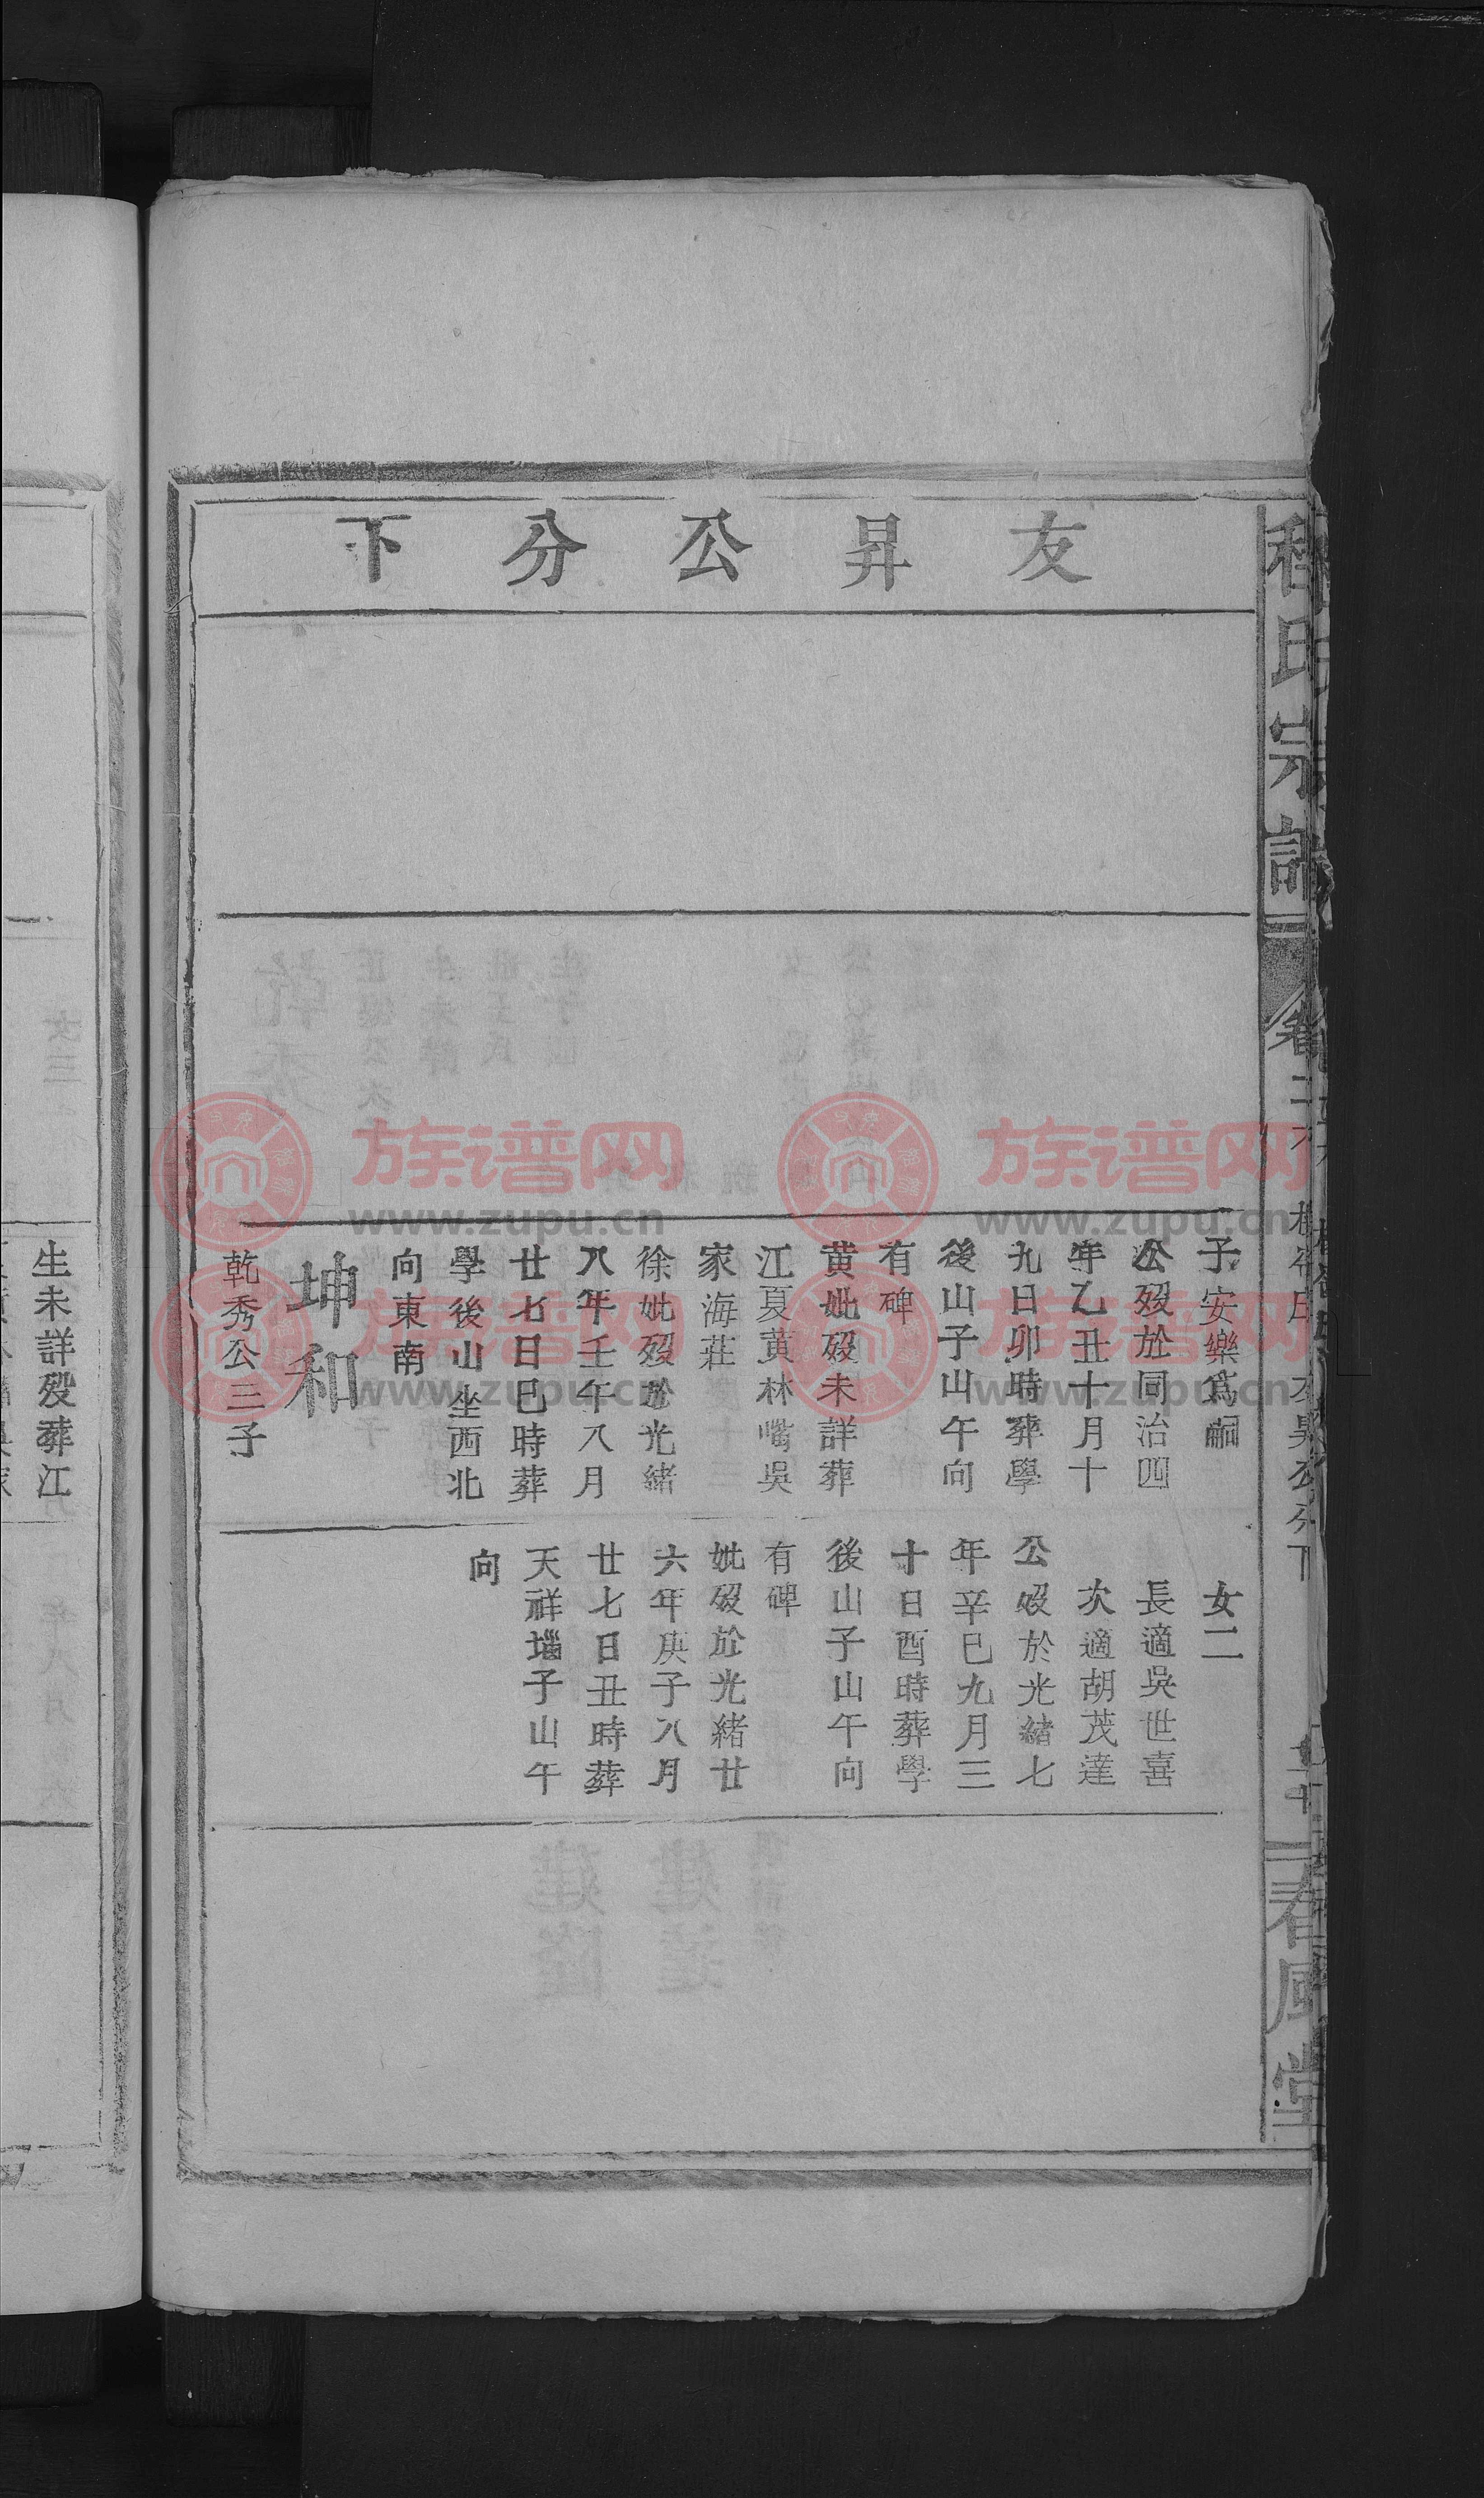 友昇公分下
子安樂爲嗣
公歿於同治四
年乙丑十月十
九日卯時葬學
後山子山午向
有碑
黄妣歿未詳葬
江夏黄林嘴吳
家海莊
徐妣歿於光緒
八年壬午八月
廿七日巳時葬
學後山坐西北
向東南
坤和
乾秀公三子
女二
長適吳世喜
次適胡茂達
公歿於光緒七
年辛巳九月三
十日酉時葬學
後山子山午向
有碑
妣歿於光緒廿
六年庚子八月
廿七日丑時葬
天祥堖子山午
向
程氏宗譜
友昇公分下
春風堂
生未詳歿葬江
族谱网
www.zupu.cn
族谱网
www.zupu.cn